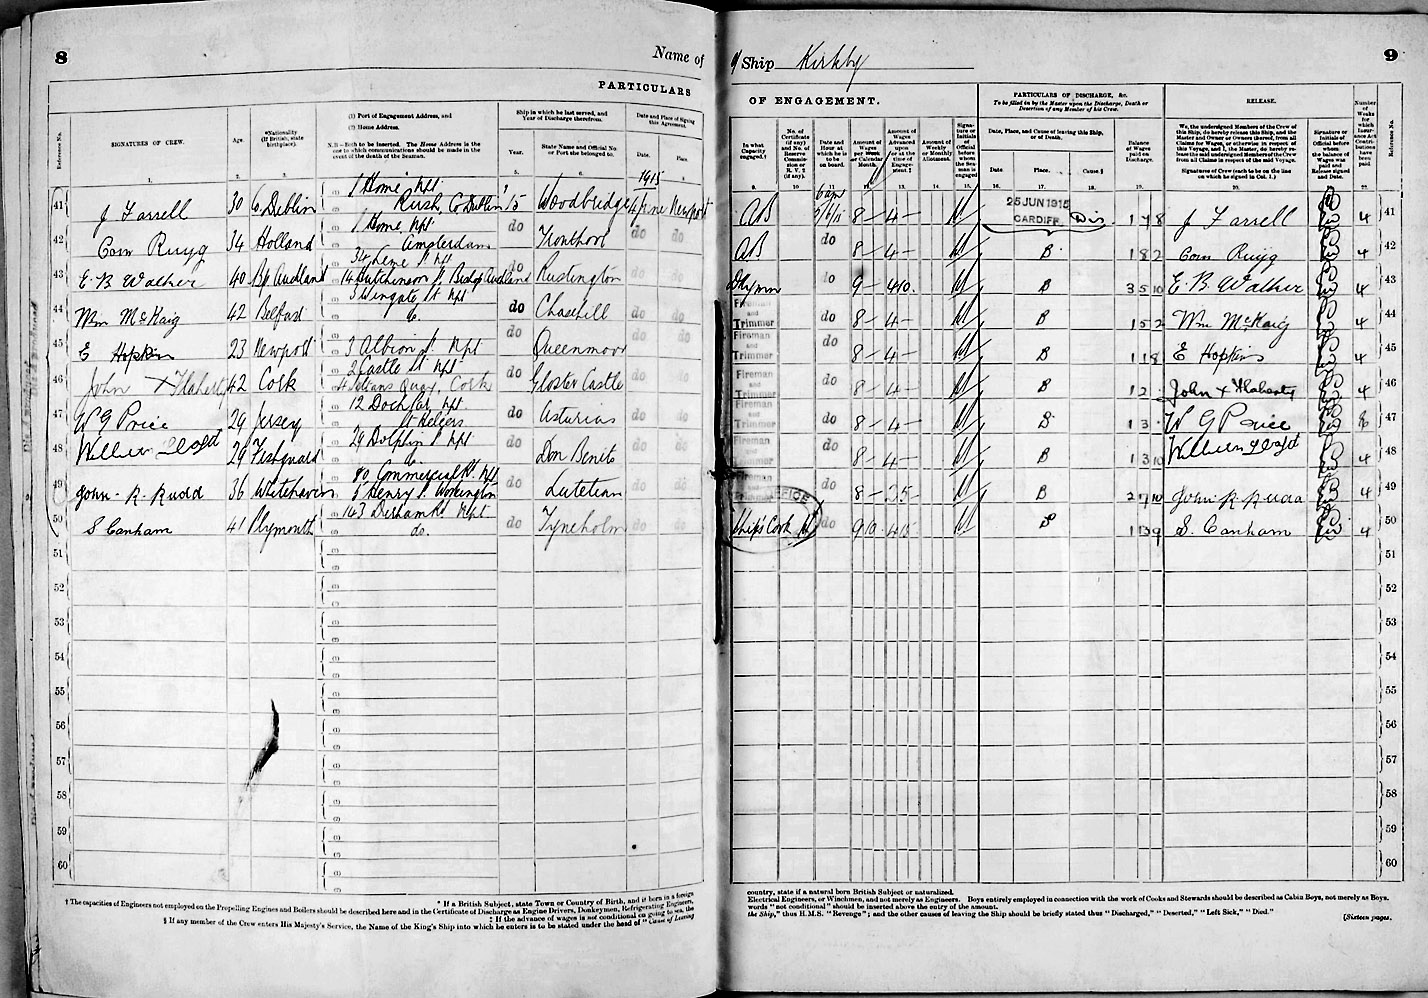 8
Name of
PARTICULARS
Reference No.
SIGNATURES OF CREW.
Age.
*Nationality
(If British, state
birthplace).
(1) Port of Engagement Address, and
(2) Home Address.
N.B.—Both to be inserted. The Home Address is the
one to which communications should be made in the
event of the death of the Seaman.
Ship in which he last served, and
Year of Discharge therefrom.
Year.
State Name and Official No.
or Port she belonged to.
Date and Place of Signing
this Agreement.
Date.
Place.
1. 2. 3. 4. 5. 6. 7. 8.
1915
41 J Farrell 30 Co Dublin 1 Home Npt Rush, Co Dublin 15 Woodbridge 4 June Newport
42 34 Holland 1 Home Npt Amsterdam do do do
43 E. B. Walker 40 Bp Auckland 14 Hutchinson St Bishop Auckland do Rustington do do
44 Wm McKaig 42 Belfast 3 Wingate St Npt do Chasehill do do
45 E Hopkins 23 Newport 3 Albion St Npt do Queenmoor do do
46 John X Flaherty 42 Cork 2 Castle St Npt Quay, Cork do Gloster Castle do do
47 W G Price 29 Jersey 12 Dock St Npt St Heliers do Asturias do do
48 29 Fishguard 29 Dolphin St Npt do Don Benito do do
49 John R Rudd 36 Whitehaven 80 Commercial Rd Npt 5 Henry St Workington do Lutetian do do
50 S Canham 41 Plymouth 143 Durham Rd Npt do. do Tyneholm do do
51
52
53
54
55
56
57
58
59
60
* If a British Subject, state Town or Country of Birth, and if born in a foreign
† The capacities of Engineers not employed on the Propelling Engines and Boilers should be described here and in the Certificate of Discharge as Engine Drivers, Donkeymen, Refrigerating Engineers,
‡ If the advance of wages is not conditional on going to sea, the
§ If any member of the Crew enters His Majesty's Service, the Name of the King's Ship into which he enters is to be stated under the head of "Cause of Leaving
of Ship Kirkby
9
OF ENGAGEMENT.
PARTICULARS OF DISCHARGE, &c.
To be filled in by the Master upon the Discharge, Death or
Desertion of any Member of his Crew.
RELEASE.
In what
Capacity
engaged.†
No. of
Certificate
(if any)
and No. of
Reserve
Commission
or
R. V. 2
(if any).
Date and
Hour at which
he is to be
on board.
Amount of
Wages
per Week
or Calendar
Month.
Amount of
Wages
Advanced
upon
or at the
time of
Engagement.‡
Amount of
Weekly
or Monthly
Allotment.
Signature or
Initials
of
Official
before
whom the
Seaman is
engaged
Date, Place, and Cause of leaving this Ship,
or of Death.
Date.
Place.
Cause.§
Balance
of Wages
paid on
Discharge.
We, the undersigned Members of the Crew of
this Ship, do hereby release this Ship, and the
Master and Owner or Owners thereof, from all
Claims for Wages, or otherwise in respect of
this Voyage, and I, the Master, do hereby release
the said undersigned Members of the Crew
from all Claims in respect of the said Voyage.
Signatures of Crew (each to be on the line
on which he signed in Col. 1.)
Signature or
Initials of
Official before
whom
the balance of
Wages was
paid and
Release signed
and Date.
Number of
Weeks for
which Insurance Act
Contributions
have been
paid.
Reference No.
9. 10 11 12. 13. 14 15. 16. 17. 18. 19. 20. 21. 22.
AB 6 am 5/6/15 8 – 4 – 25 JUN 1915 CARDIFF Dis. 1 7 8 J Farrell 4 41
AB do 8 – 4 – 1 8 2 4 42
do 9 – 4 10 3 5 10 E. B. Walker 4 43
Fireman and Trimmer do 8 – 4 – 1 5 2 Wm McKaig 4 44
Fireman and Trimmer do 8 – 4 – 1 1 8 E Hopkins 4 45
Fireman and Trimmer do 8 – 4 – 1 2 John X Flaherty 4 46
Fireman and Trimmer do 8 – 4 – 1 3 W G Price 47
Fireman and Trimmer do 8 – 4 – 1 3 10 4 48
Fireman and Trimmer do 8 – 2 7 10 John R Rudd 4 49
Ship's Cook do 9 10 4 15 S. Canham 4 50
51
52
53
54
55
56
57
58
59
60
country, state if a natural born British Subject or naturalized.
Electrical Engineers, or Winchmen, and not merely as Engineers. Boys entirely employed in connection with the work of Cooks and Stewards should be described as Cabin Boys, not merely as Boys.
words "not conditional" should be inserted above the entry of the amount.
the Ship," thus H.M.S. "Revenge"; and the other causes of leaving the Ship should be briefly stated thus "Discharged," "Deserted," "Left Sick," "Died."
[Sixteen pages.